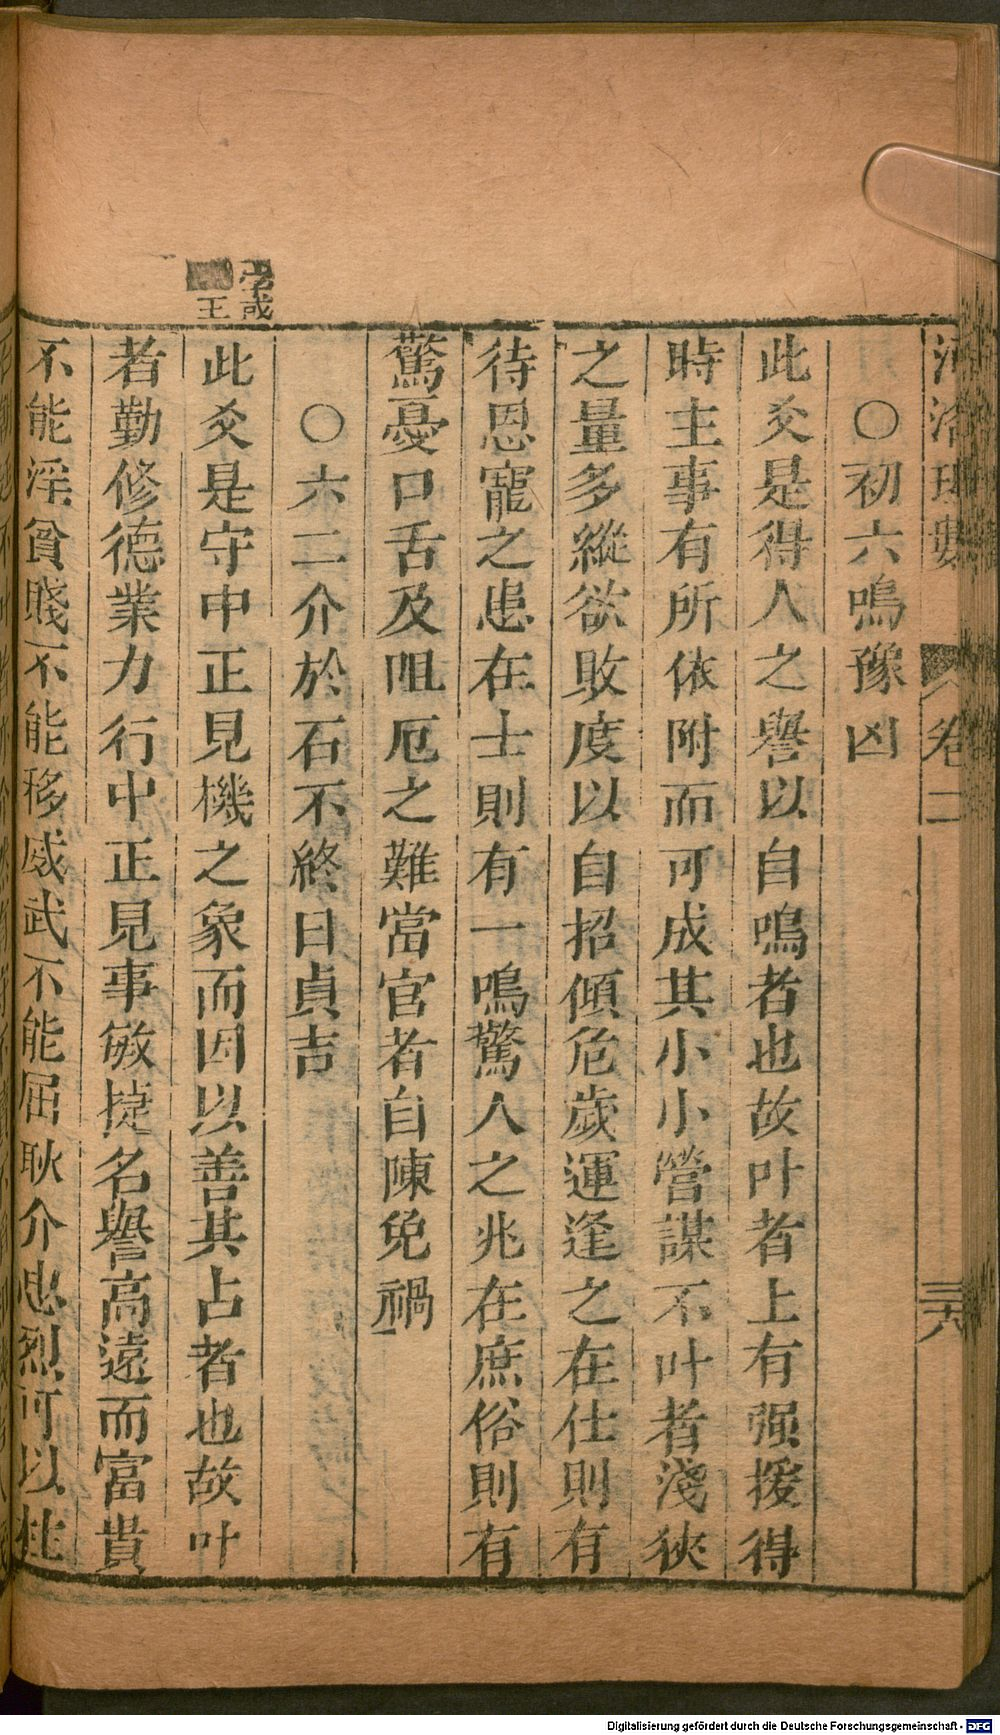 河洛理數 卷二 三十八
〇初六鳴豫凶
此爻是得人之譽以自鳴者也故叶者上有强援得
時主事有所依附而可成其小小營謀不叶者淺狹
之量多縱欲敗度以自招傾危歲運逢之在仕則有
待恩寵之患在士則有一鳴驚人之兆在庶俗則有
驚憂口舌及阻厄之難當官者自陳免禍
〇六二介於石不終日貞吉
此爻是守中正見機之象而因以善其占者也故叶
者勤修德業力行中正見事敏捷名譽高遠而富貴
不能淫貧賤不能移威武不能屈耿介忠烈可以柱
或
王
Digitalisierung gefördert durch die Deutsche Forschungsgemeinschaft - DFG